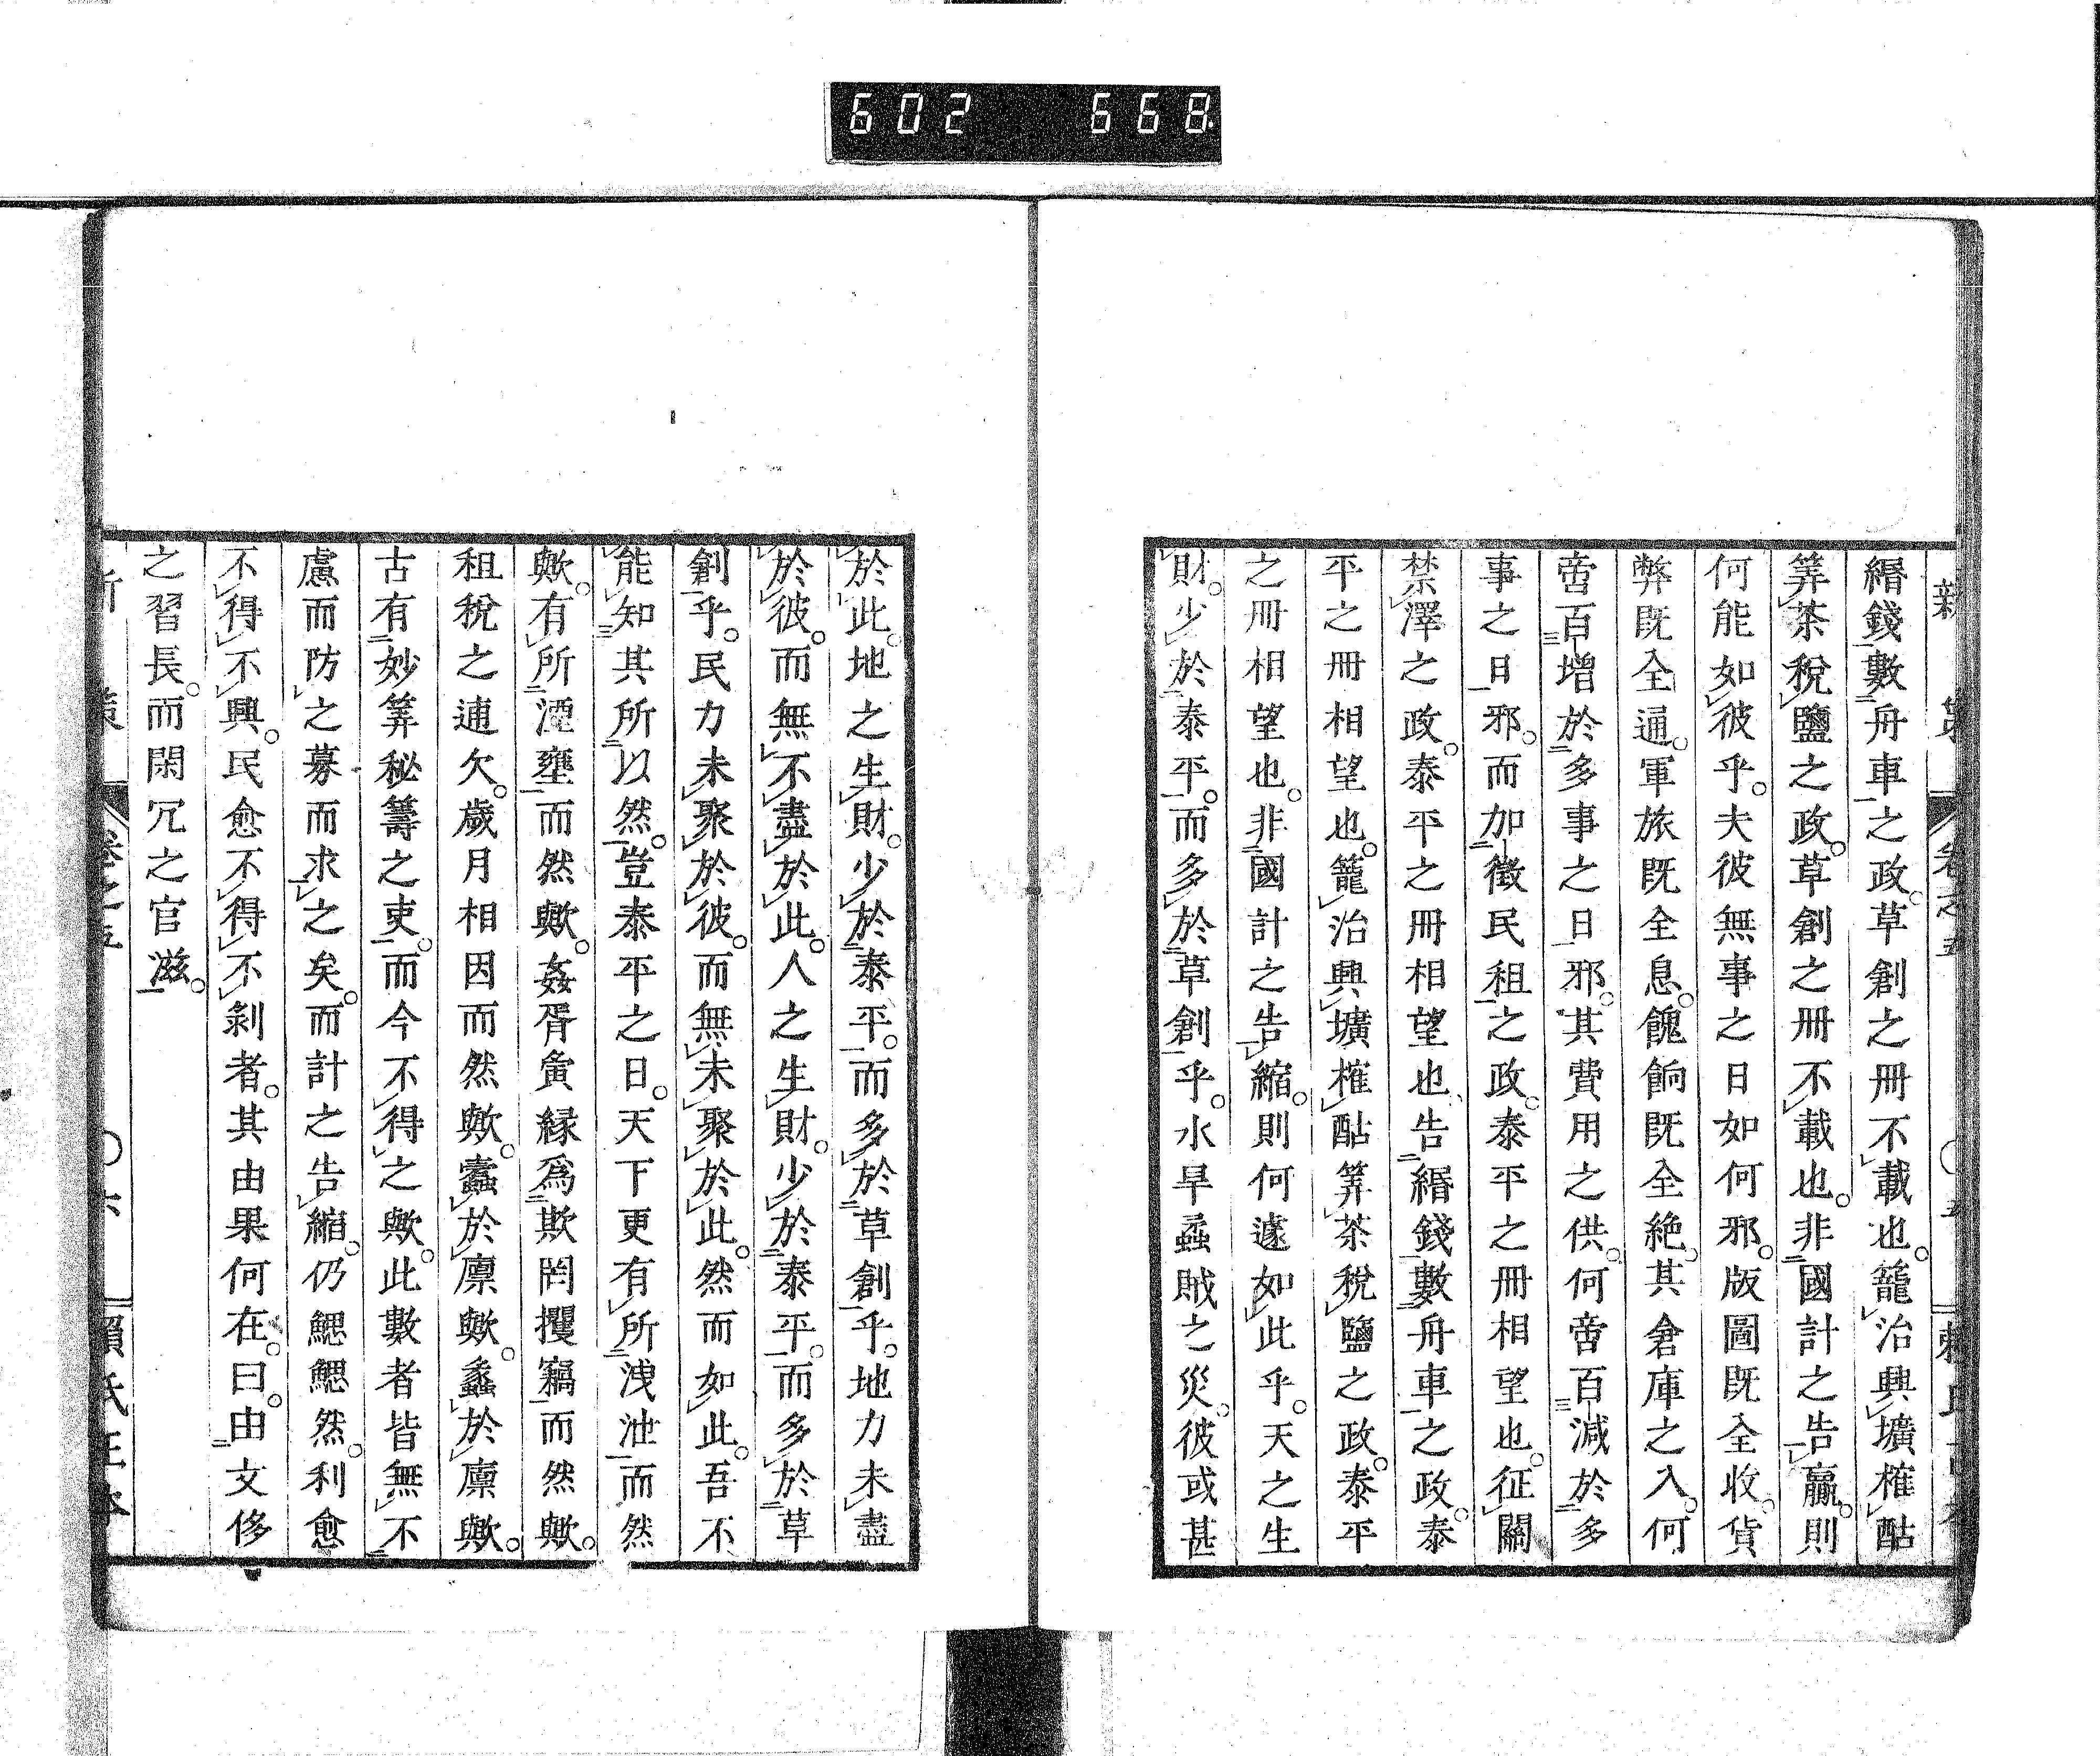 602 668
緡錢數舟車之政。草創之冊不載也。籠冶興壙榷酤
筭茶稅鹽之政。草創之冊不載也。非國計之告贏。則
何能如彼乎。夫彼無事之日如何邪。版圖既全收。貨
弊既全通。軍旅既全息。餽餉既全絶。其倉庫之入。何
啻百增於多事之日邪。其費用之供。何啻百減於多
事之日邪。而加徵民租之政。泰平之冊相望也。征關
禁澤之政。泰平之冊相望也告緡錢數舟車之政。泰
平之冊相望也。籠冶興壙榷酤筭茶稅鹽之政。泰平
之冊相望也。非國計之告縮。則何遽如此乎。天之生
財。少於泰平。而多於草創乎。水旱蟊賊之災。彼或甚
於此。地之生財。少於泰平。而多於草創乎。地力未盡
於彼。而無不盡於此。人之生財。少於泰平。而多於草
創乎。民力未聚於彼。而無未聚於此。然而如此。吾不
能知其所以然。豈泰平之日。天下更有所洩泄而然
歟。有所湮壅而然歟。姦胥夤緣爲欺罔攫竊而然歟。
租稅之逋欠。歲月相因而然歟。蠹於廪歟。蠡於廪歟。
古有妙筭秘籌之吏。而今不得之歟。此數者皆無不
慮而防之募而求之矣。而計之告縮。仍鰓鰓然。利愈
不得不興。民愈不得不剝者。其由果何在。曰。由文侈
之習長。而閑冗之官滋。
新策 卷之五 〇六 頼氏正本